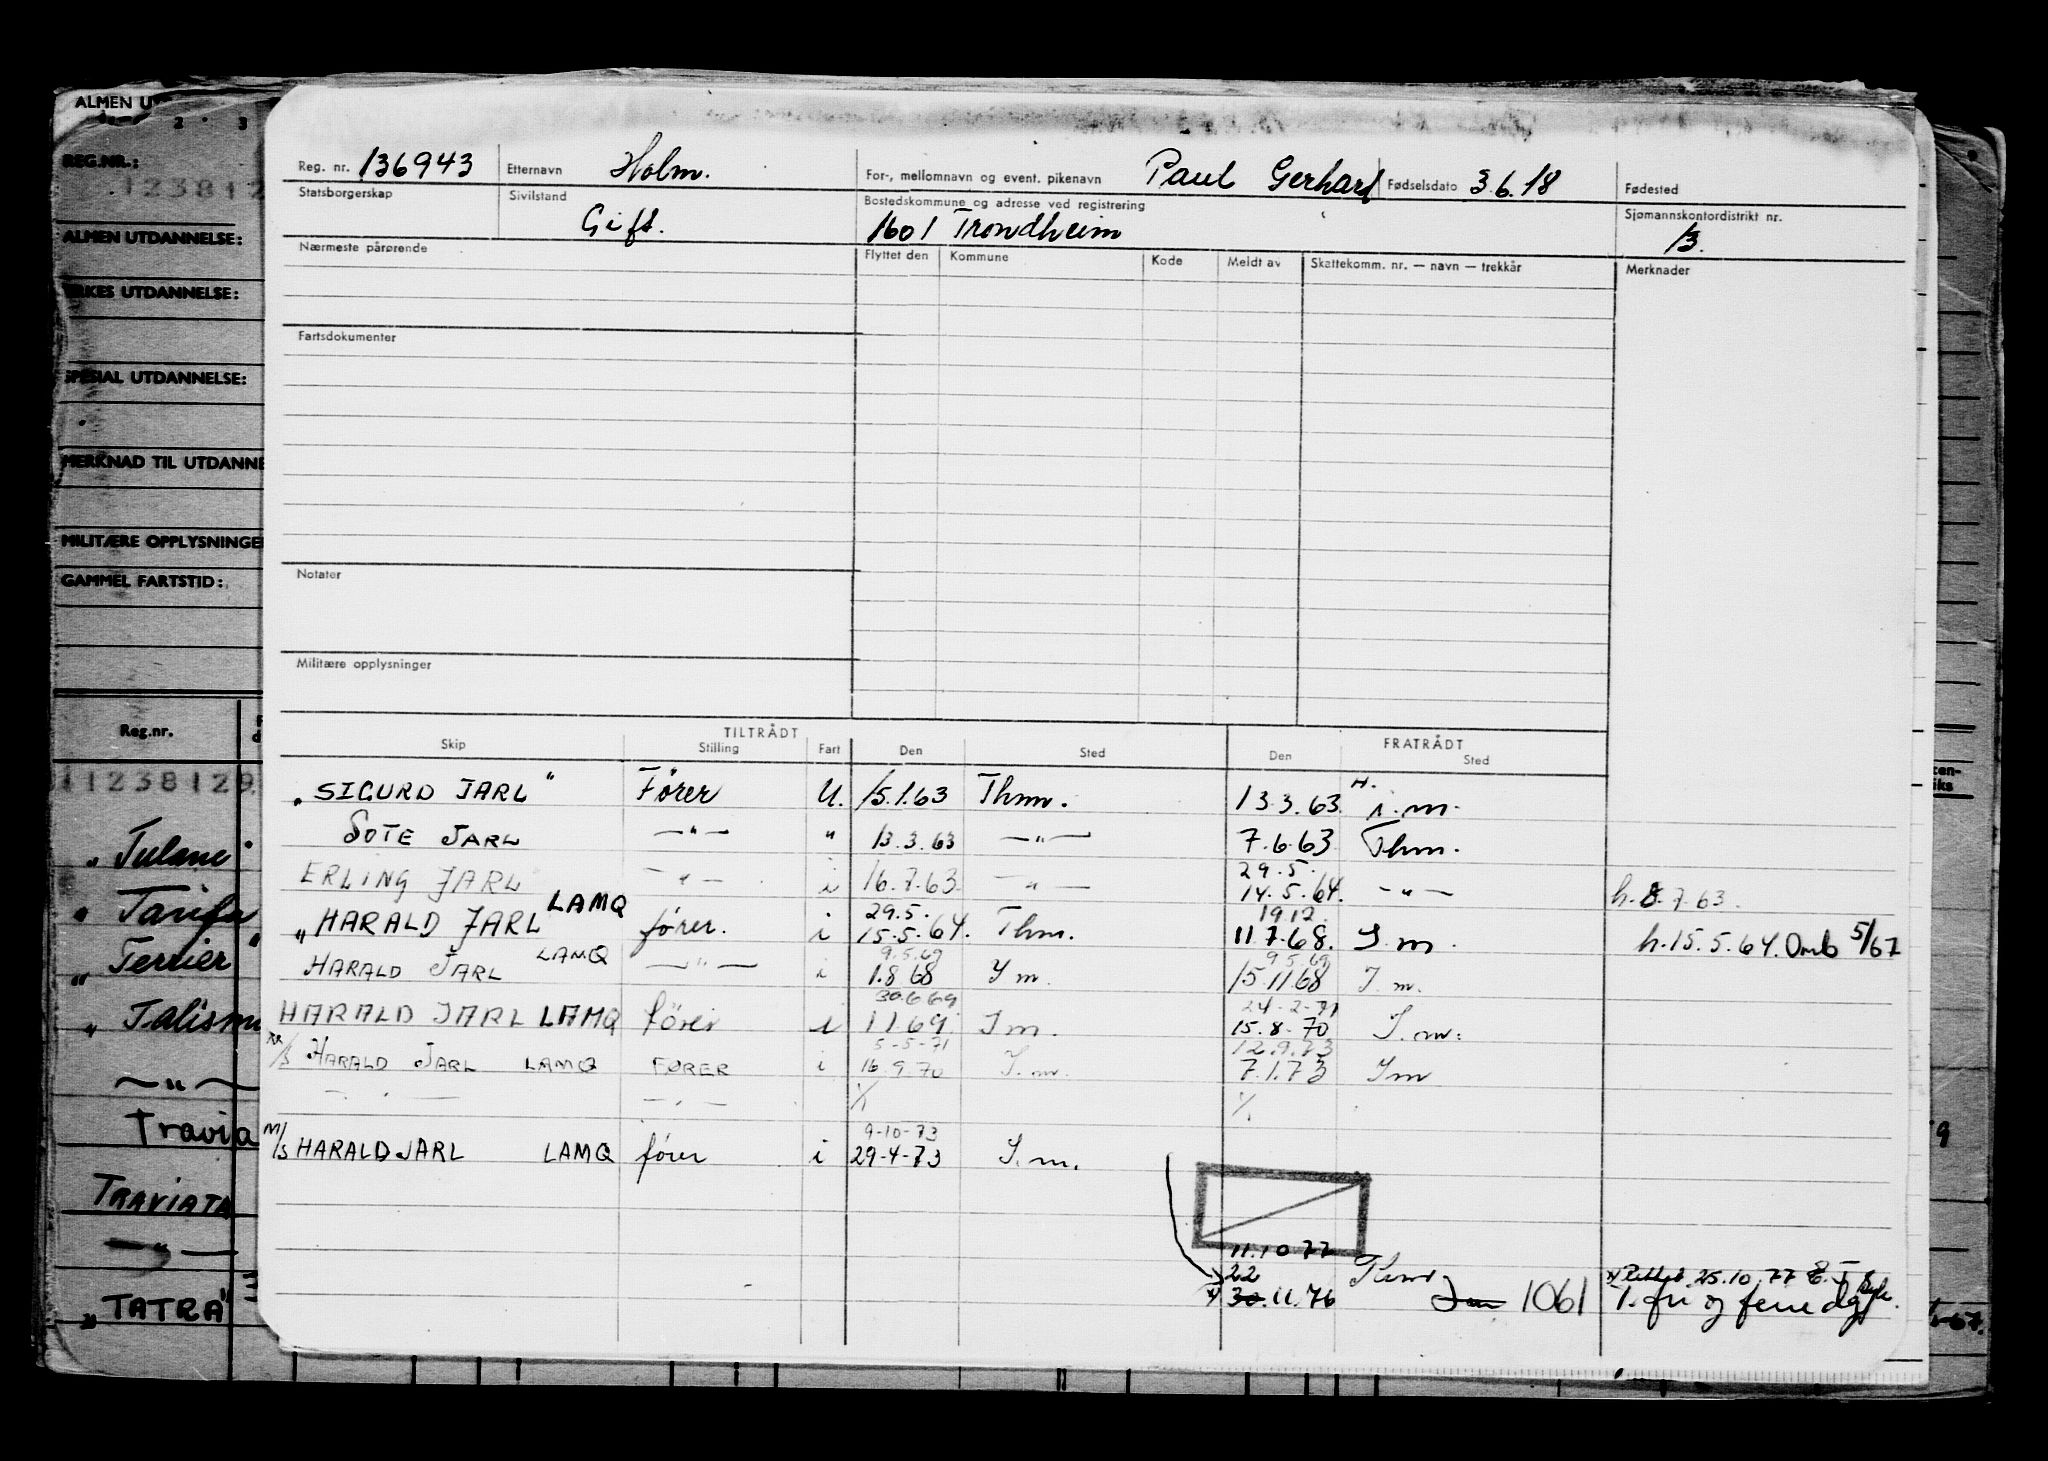 ALMEN U
2 3
REG.NR.:
123812
ALMEN UTDANNELSE:
YRKES UTDANNELSE:
SPESIAL UTDANNELSE:
MERKNAD TIL UTDANNE
MILITÆRE OPPLYSNINGE
GAMMEL FARTSTID:
Reg.nr.
11238129
"Tulane"
" Tarifa
" Terrier"
" Talisma
— " —
Travia
TRAVIATA
— " —
"TATRA"
Reg. nr. 136943 Etternavn Holm. For-, mellomnavn og event. pikenavn Paul Gerhard Fødselsdato 3.6.18 Fødested
Statsborgerskap Sivilstand Gift. Bostedskommune og adresse ved registrering 1601 Trondheim Sjømannskontordistrikt nr. 13.
Nærmeste pårørende Flyttet den Kommune Kode Meldt av Skattekomm. nr. — navn — trekkår Merknader
Fartsdokumenter
Notater
Militære opplysninger
TILTRÅDT FRATRÅDT
Skip Stilling Fart Den Sted Den Sted
"SIGURD JARL" Fører U. 15.1.63 Thm. 13.3.63. H. i.m.
SOTE JARL — " — " 13.3.63 — " — 7.6.63 Thm.
29.5.
ERLING JARL — " — i 16.7.63. — " — 14.5.64. — " — h.8.7.63.
29.5. 19.12.
"HARALD JARL LAMQ fører. i 15.5.64. Thm. 11.7.68. I.m. h.15.5.64. Omb 5/67
9.5.69 9.5.69
HARALD JARL LAMQ — " — i 1.8.68 I m. 15.11.68 I.m.
30.6.69 24-2-71
HARALD JARL LAMQ fører i 1.1.69. I m. 15.8.70 I.m.
5-5-71 12.9.73
M/S HARALD JARL LAMQ FØRER i 16.9.70 I.m. 7.1.73 I m
— " — — " — 1/1 1/1
9-10-73
M/S HARALD JARL LAMQ fører i 29-4-73 I.m.
11.10 77
22
x) 30.11.76 1061
x) Rettet 25.10.77
1. fri og ferie dg
9
-67.